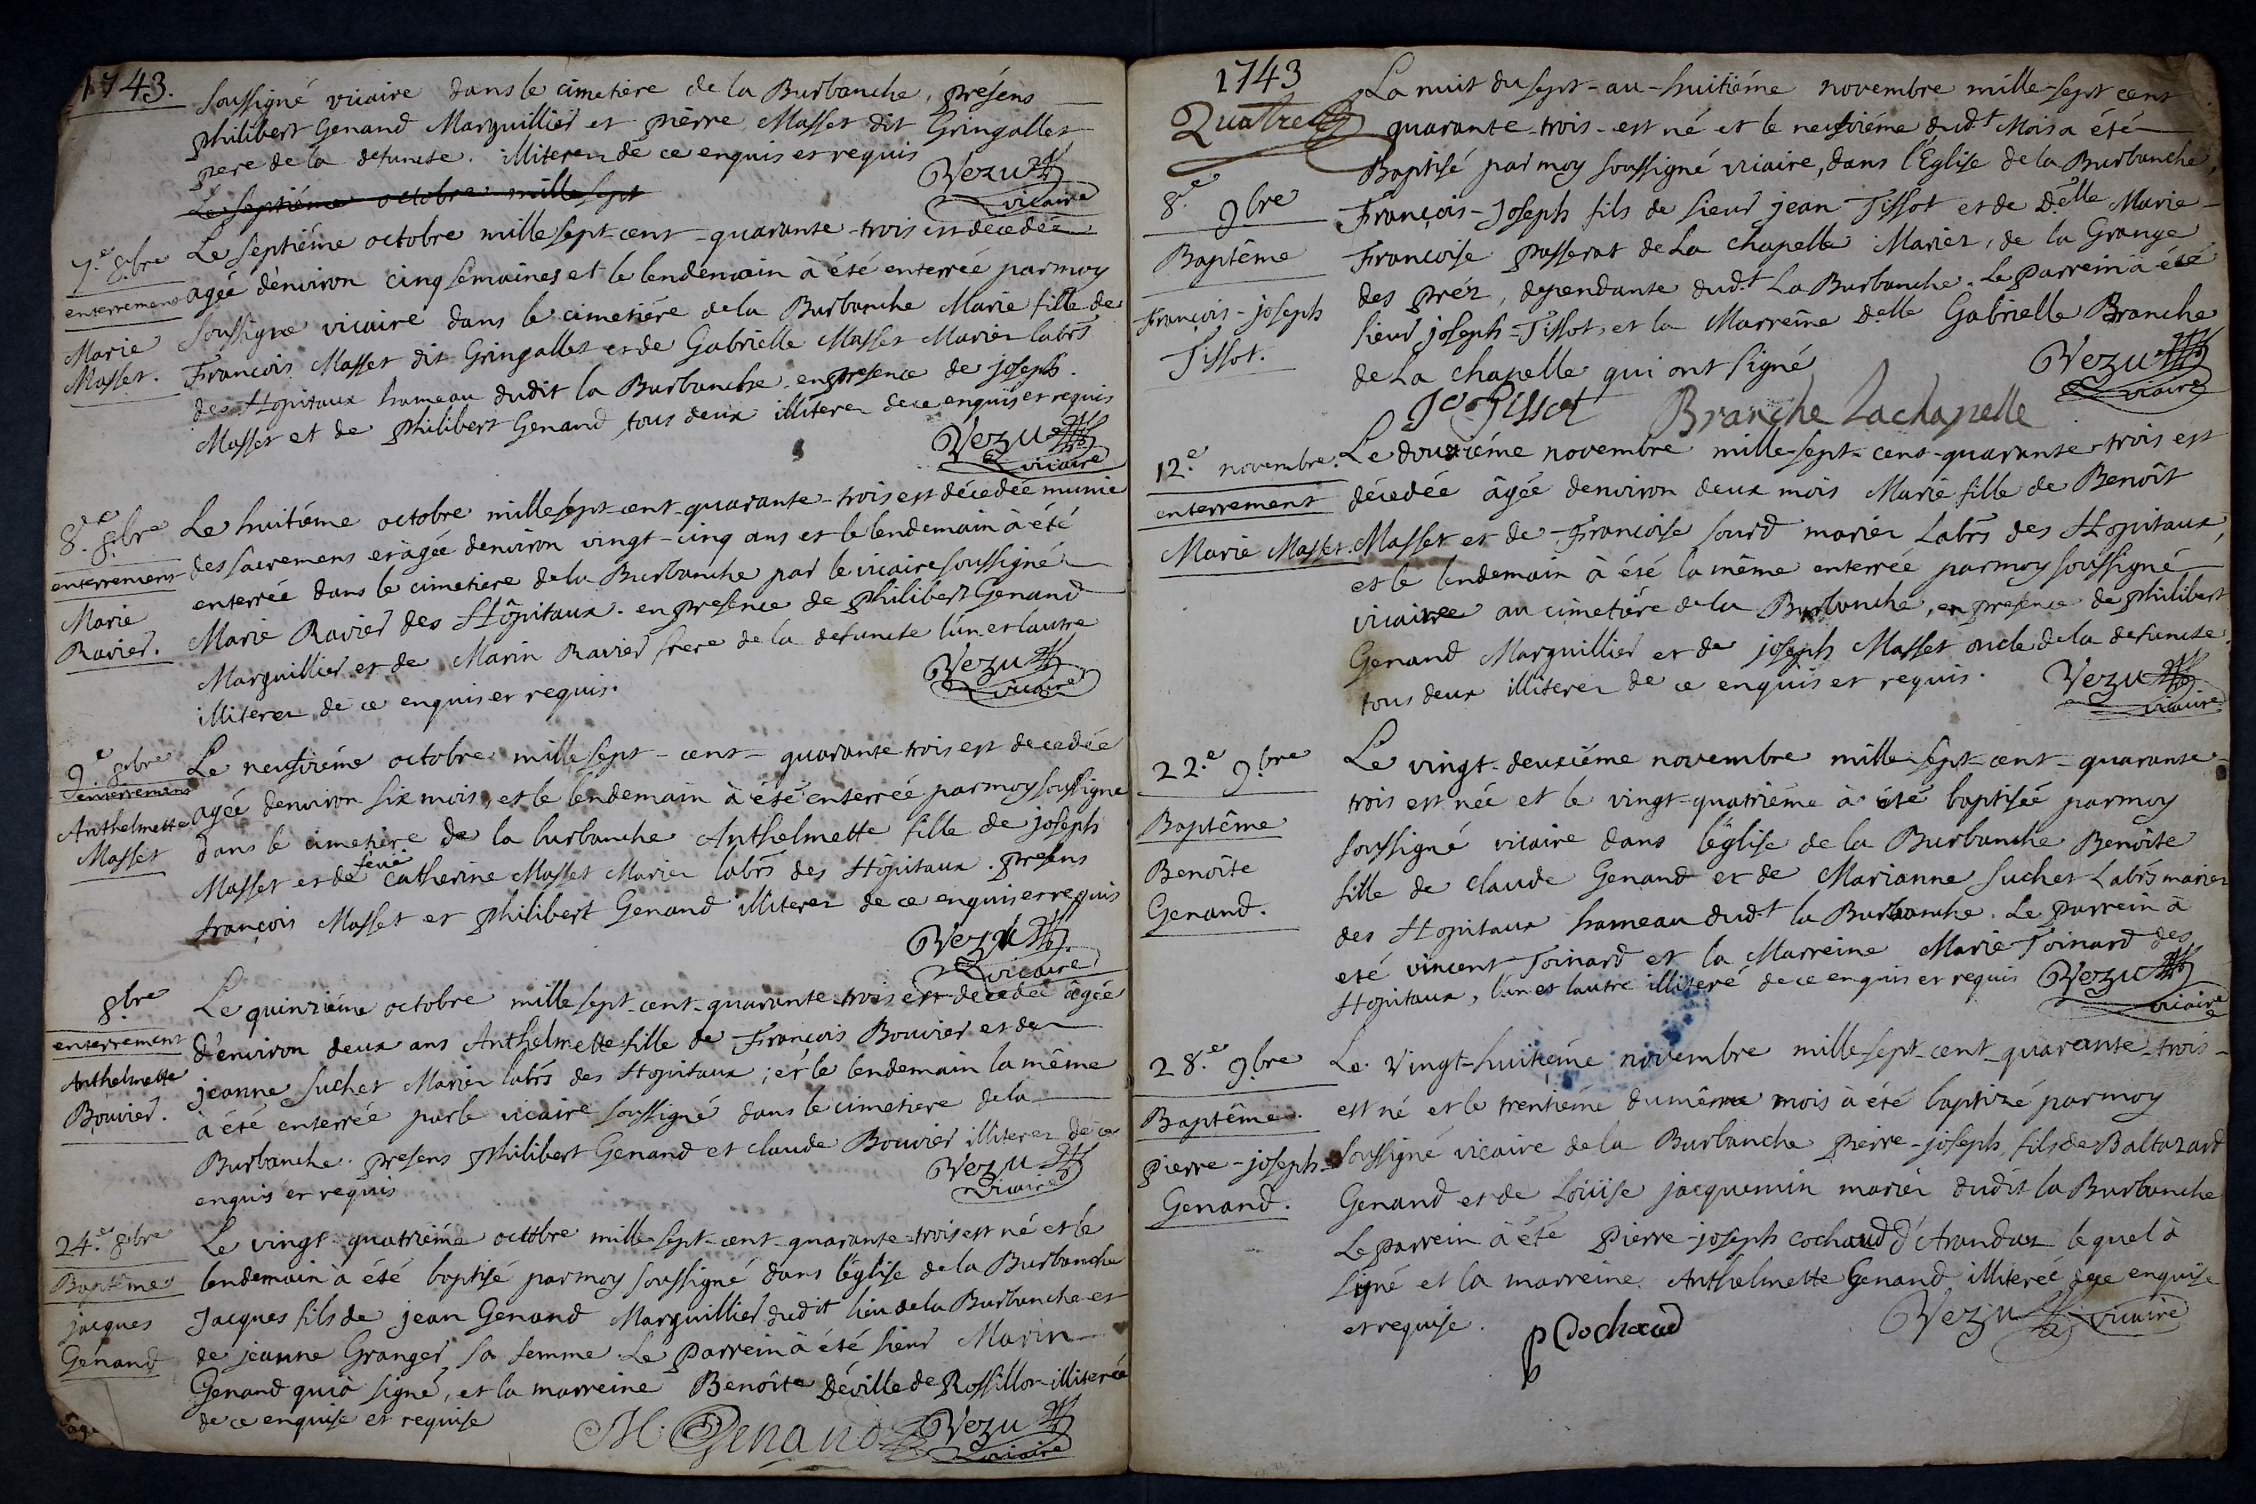 1743.
soussigné vicaire dans le cimetière de la Burbanche, présens
philibert Genand Marguillier et pierre Masset dit Gringallet
pere de la defuncte. illiterez de ce enquis et requis
Vezu
vicaire
Le septiéme octobre mille sept
7.e 8bre
enterrement
Marie
Masset.
Le septiéme octobre mille sept-cent-quarante-trois est decedée
agée denviron cinq semaines et le lendemain à été enterrée par moy
soussigné vicaire dans le cimetiére de la Burbanche Marie fille de
François Masset dit Gringallet et de Gabrielle Masset Mariez labrs
des Hopitaux hameau dudit la Burbanche. en presence de joseph
Masset et de philibert Genand, tous deux illiterez de ce enquis et requis
Vezu
vicaire
8.e 8bre
enterrement
Marie
Ravier.
Le huitiéme octobre mille sept-cent-quarante-trois est décedée munie
des sacremens et agée denviron vingt-cinq ans et le lendemain à été
enterrée dans le cimetiere de la Burbanche par le vicaire soussigné
Marie Ravier des Hôpitaux. en presence de philibert Genand
Marguillier et de Marin Ravier frere de la defuncte l'un et l'autre
illiterez de ce enquis et requis.
Vezu
vicaire
9.e 8bre
enterrement
Anthelmette
Masset
Le neufviéme octobre mille sept-cent-quarante trois est decedée
agée denviron six mois, et le lendemain à été enterrée par moy soussigné
dans le cimetiere de la burbanche Anthelmette fille de joseph
Masset et de feüe catherine Masset Mariez labrs des Hôpitaux. presens
françois Masset et philibert Genand illiterez de ce enquis et requis
Vezu
vicaire
8bre
enterrement
Anthelmette
Bouvier.
Le quinziéme octobre mille sept-cent-quarante-trois est decedée agée
d'environ deux ans Anthelmette fille de François Bouvier et de
jeanne Suchet Mariez labrs des Hopitaux; et le lendemain la même
à été enterrée par le vicaire soussigné dans le cimetiere de la
Burbanche. presens philibert Genand et claude Bouvier illiterez de ce
enquis et requis
Vezu
vicaire
24.e 8bre
Baptême
jacques
Genand
Le vingt-quatriéme octobre mille sept-cent-quarante-trois est né et le
lendemain à été baptisé par moy soussigné dans l'église de la Burbanche
Jacques fils de jean Genand Marguillier dudit lieu de la Burbanche et
de jeanne Granger sa femme. Le parrein à été sieur Marin
Genand qui à signé, et la marreine Benoîte Déville de Rossillon illiterée
de ce enquise et requise
M. Genand
Vezu
vicaire
1743
Quatre
8.e 9bre
Baptême
François-joseph
Tissot.
La nuit du sept-au-huitiéme novembre mille-sept cent
quarante-trois-est né et le neufviéme dud.t Mois a été
Baptisé par moy soussigné vicaire, dans l'Eglise de la Burbanche,
François-Joseph fils de sieur jean Tissot et de Delle Marie
Françoise passerat de La chapelle Mariez, de la Grange
des préz, dependante dud.t La Burbanche. Le parrein à été
sieur joseph-Tissot, et la Marreine Delle Gabrielle Branche
de La chapelle qui ont signé
Vezu
vicaire
Jo Tissot
Branche Lachapelle
12.e novembre.
enterrement
Marie Masset.
Le douziéme novembre mille-sept-cent-quarante-trois est
décedée âgée denviron deux mois Marie fille de Benoît
Masset et de Françoise sourd mariez Labrs des Hopitaux,
et le lendemain à été la même enterrée par moy soussigné
vicaire au cimetiére de la Burbanche, en presence de philibert
Genand Marguillier et de joseph Masset oncle de la defuncte.
tous deux illiterez de ce enquis et requis.
Vezu
vicaire
22.e 9bre
Baptême
Benoîte
Genand.
Le vingt-deuxiéme novembre mille-sept-cent-quarante-
trois est née et le vingt-quatriéme à été baptisée par moy
soussigné vicaire dans l'église de la Burbanche Benoîte
fille de claude Genand et de Marianne suchet Labrs mariez
des Hopitaux hameau dud.t la Burbanche. Le parrein à
été vincent Toinard et la Marreine Marie Toinard des
Hopitaux, l'un et l'autre illiteré de ce enquis et requis
Vezu
vicaire
28.e 9bre
Baptême.
pierre-joseph
Genand.
Le Vingt-huitiéme novembre mille sept-cent-quarante-trois
est né et le trentiéme du même mois à été baptizé par moy
soussigné vicaire de la Burbanche pierre-joseph fils de Baltazard
Genand et de Loüise jacquemin mariez dudit la Burbanche
Le parrein à été pierre-joseph cochaud d'Arandaz lequel à
signé et la marreine Anthelmette Genand illiterée de ce enquise
et requise.
p Cochaud
Vezu vicaire